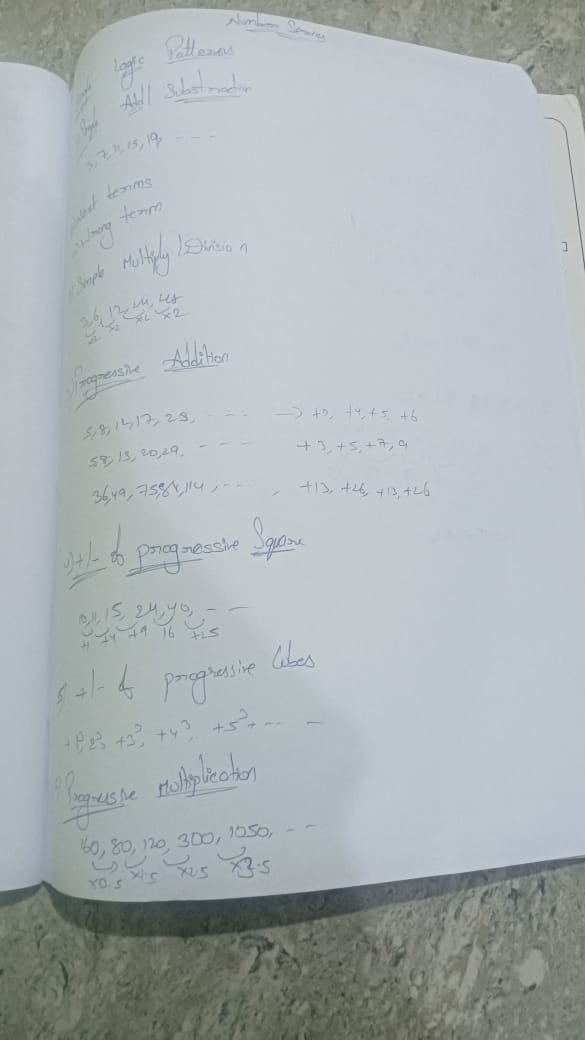 Number Series
Logic Patterns
Simple Add | Substraction
3, 7, 11, 15, 19, - - -
terms
Wrong term
Simple Multiply | Division
3, 6, 12, 24, 48
x2 x2 x2 x2
Progressive Addition
5, 8, 12, 17, 23, - - - → +3, +4, +5, +6
5, 8, 13, 20, 29, - - - +3, +5, +7, 9
36, 49, 75, 88, 114, - - - , +13, +26, +13, +26
+/- of progressive Square
10, 11, 15, 24, 40, - -
+1 +4 +9 16 +25
5) +/- of progressive Cubes
+1³, 2³, +3³, +4³, +5³+ - - -
Progressive Multiplication
160, 80, 120, 300, 1050, - -
x0.5 x1.5 x2.5 x3.5